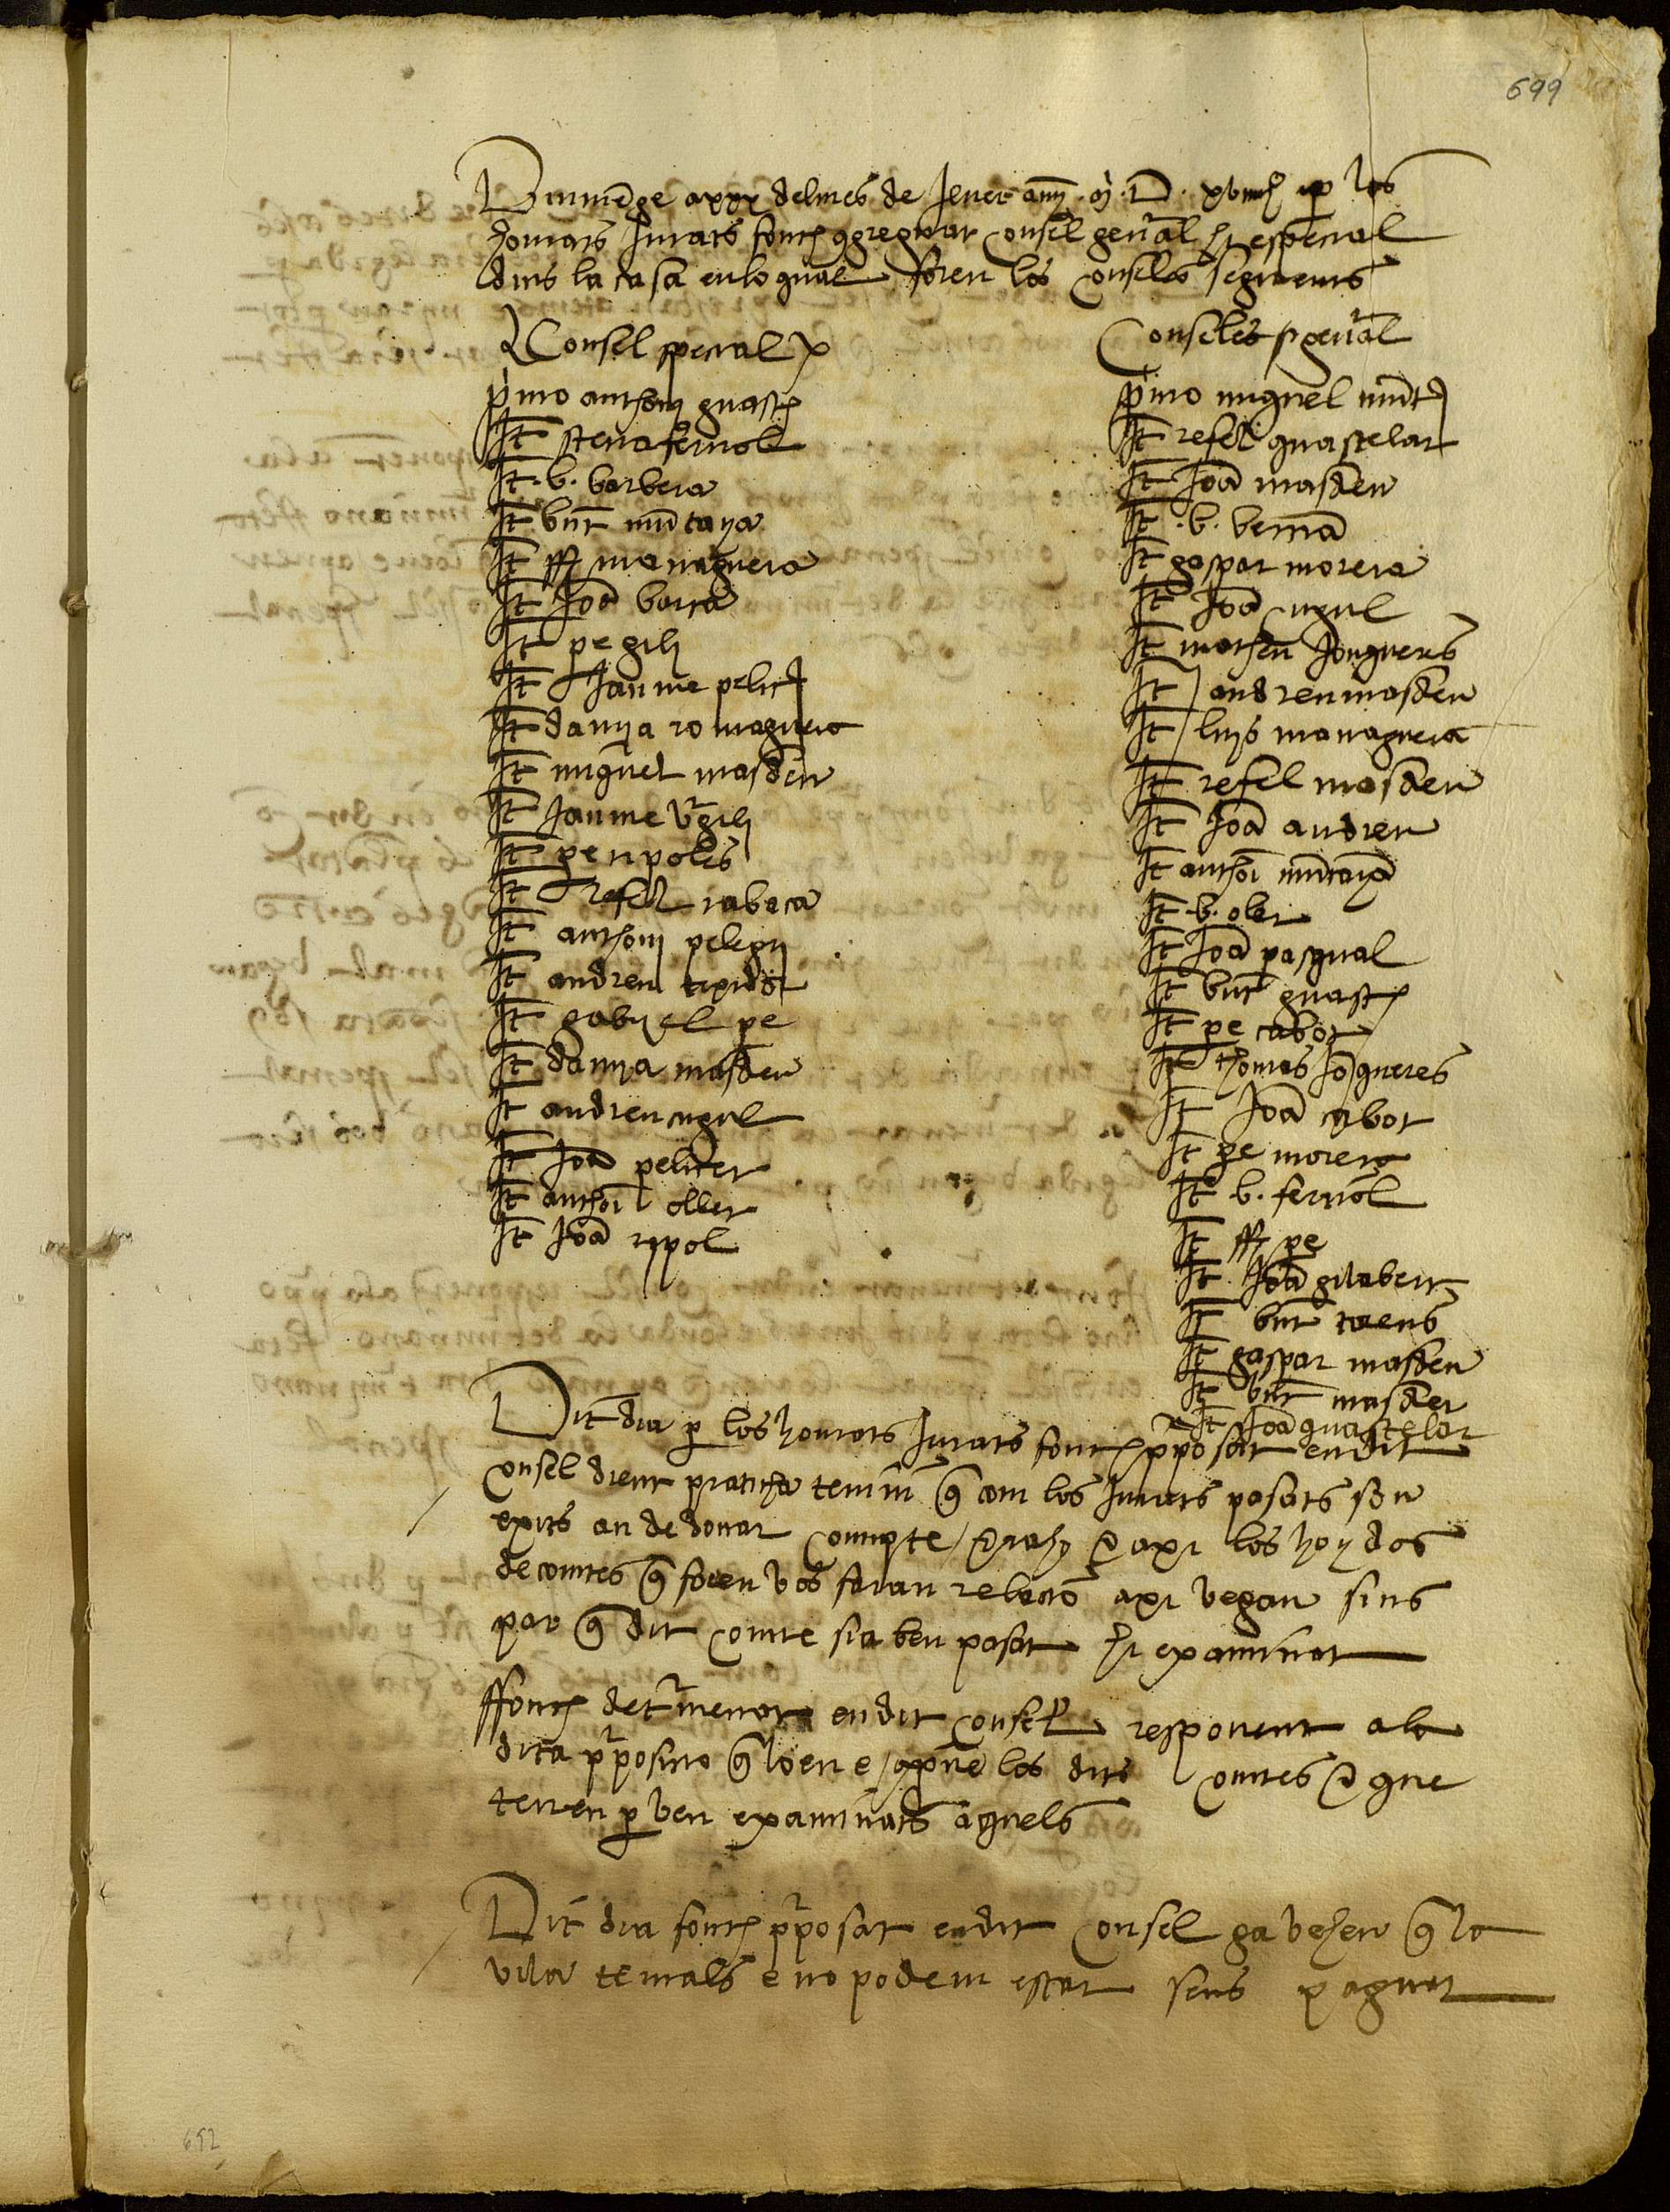 699
Diumēge a xxx del mes de Jener any .M.D. xviiij per los
honrats Jurats fonch ɔgreguat consel generāl hi especial
dins la casa en lo qual foren los conselēs seguents
Consel special
pͥmo anthonj guasch
It steva feriol
It .b. barbera
It bñt mūtaya
It ff managuera
It Joā barra
It pe gilj
It Jaume pelicer
It damja romaguera
It miguel masdeu
It Jaume Vͬgilj
It pe npoles
It refel rabaca
It anthonj pelegrj
It andreu tixidor
It gabriel pe
It damja masdeu
It andreu cugul
It Joā pelicer
It anthoi oller
It Joā rypol
Conseles generāl
pͥmo miguel munter
It refel guastelar
It Joā masdeu
It .b. bernā
It gaspar morera
It Joā cugul
It matheu Jonqueres
It andreu masdeu
It luys managuera
It refel masdeu
It Joā andreu
It anthoi mūtaya
It .b. oler
It Joā pasqual
It bñt guasch
It pe cabot
It thomas Joqueres
It Joā cabot
It pe morera
It b. feriol
It ff pe
It Joā gilabert
It bñt torens
It gaspar masdeu
It bñt masdeu
It Joā guastelar
Dit dia p los honrats Jurats fonch pposat en dit
consel dient praticha tenim q̄ com los Jurats pasats son
exits an de donar compte e raho e axi los hoydos
de comtes q̄ foren vos faran relacio axi vegan sius
par q̄ dit comte sia ben pasat hi examinat
ffonch detͬmenat en dit consel responent a la
dita pͬposicio q̄ loen e aproē los dits comtes e que
tenen p ben examinats aquels
Dit dia fonch pͬposat en dit consel ga vehen q̄ la
vila te mals e no podem estar sens paguar
692